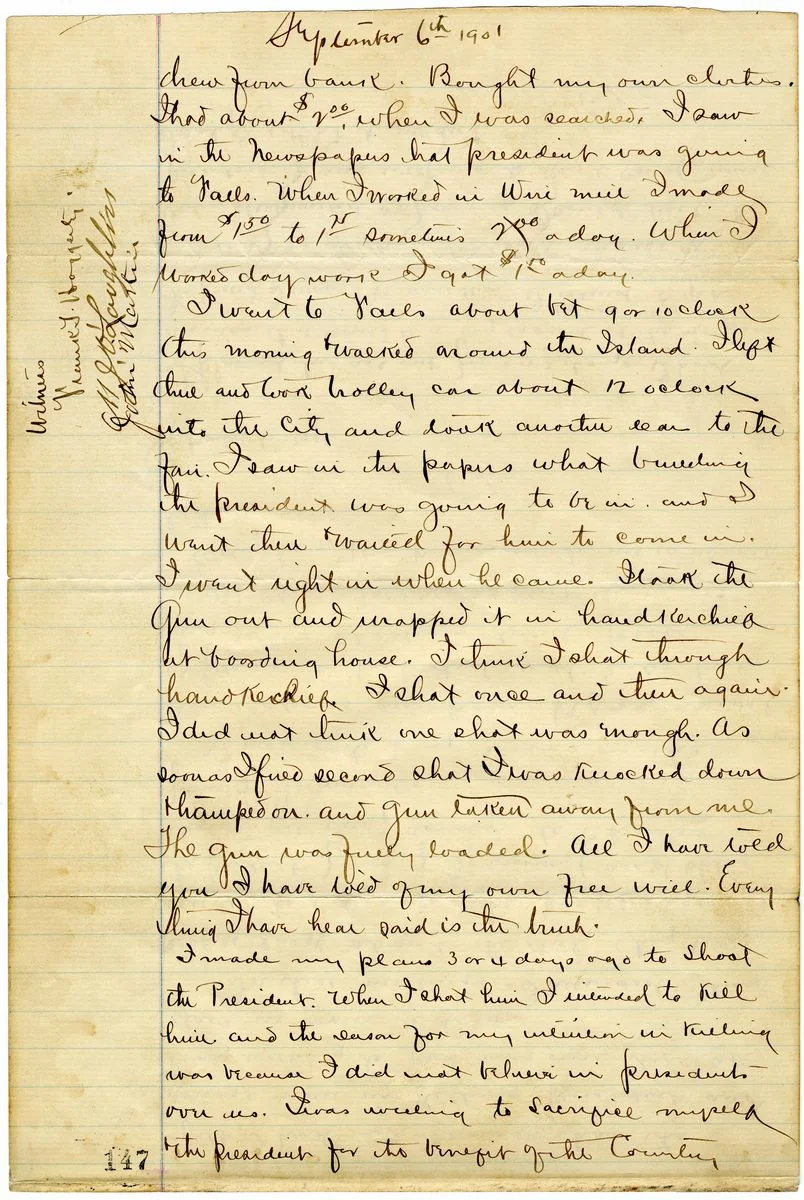 September 6th 1901
drew from bank. Bought my own clothes.
I had about $2.00, when I was searched. I saw
in the Newspapers that president was going
to Falls. When I worked in Wire mill I made
from $1.50 to 1.75 sometimes 2.00 a day. When I
worked day work I got a day.
I went to Falls about bet 9 or 10 oclock
this morning & walked around the Island. I left
there and took trolley car about 12 oclock
into the City and took another car to the
fair. I saw in the papers what building
the president was going to be in. and I
went there & waited for him to come in.
I went right in when he came. I took the
Gun out and wrapped it in handkerchief
at boarding house. I think I shot through
handkerchief. I shot once and then again.
I did not think one shot was enough. As
soon as I fired second shot I was knocked down
& stamped on. and Gun taken away from me.
The Gun was fully loaded. All I have told
you I have told of my own free will. Every
thing I have hear said is the truth.
I made my plans 3 or 4 days ago to Shoot
the President. When I shot him I intended to Kill
him and the reason for my intention in Killing
was because I did not believe in presidents
over us. I was willing to Sacrifice myself
& the president for the benefit of the Country
Witness
Frank T. Haggerty.
O'Loughlin
John Martin
147